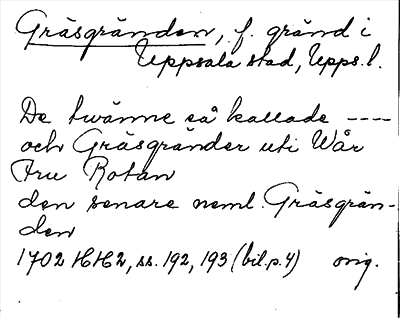 Gräsgränden, f. gränd i
Uppsala stad, Upps. l.
De twänne så kallade ----
och Gräsgränder uti Wår
Fru Rotan
den senare neml. Gräsgrän-
den
1702 HH2, ss. 192, 193 (bil. p. 4) orig.